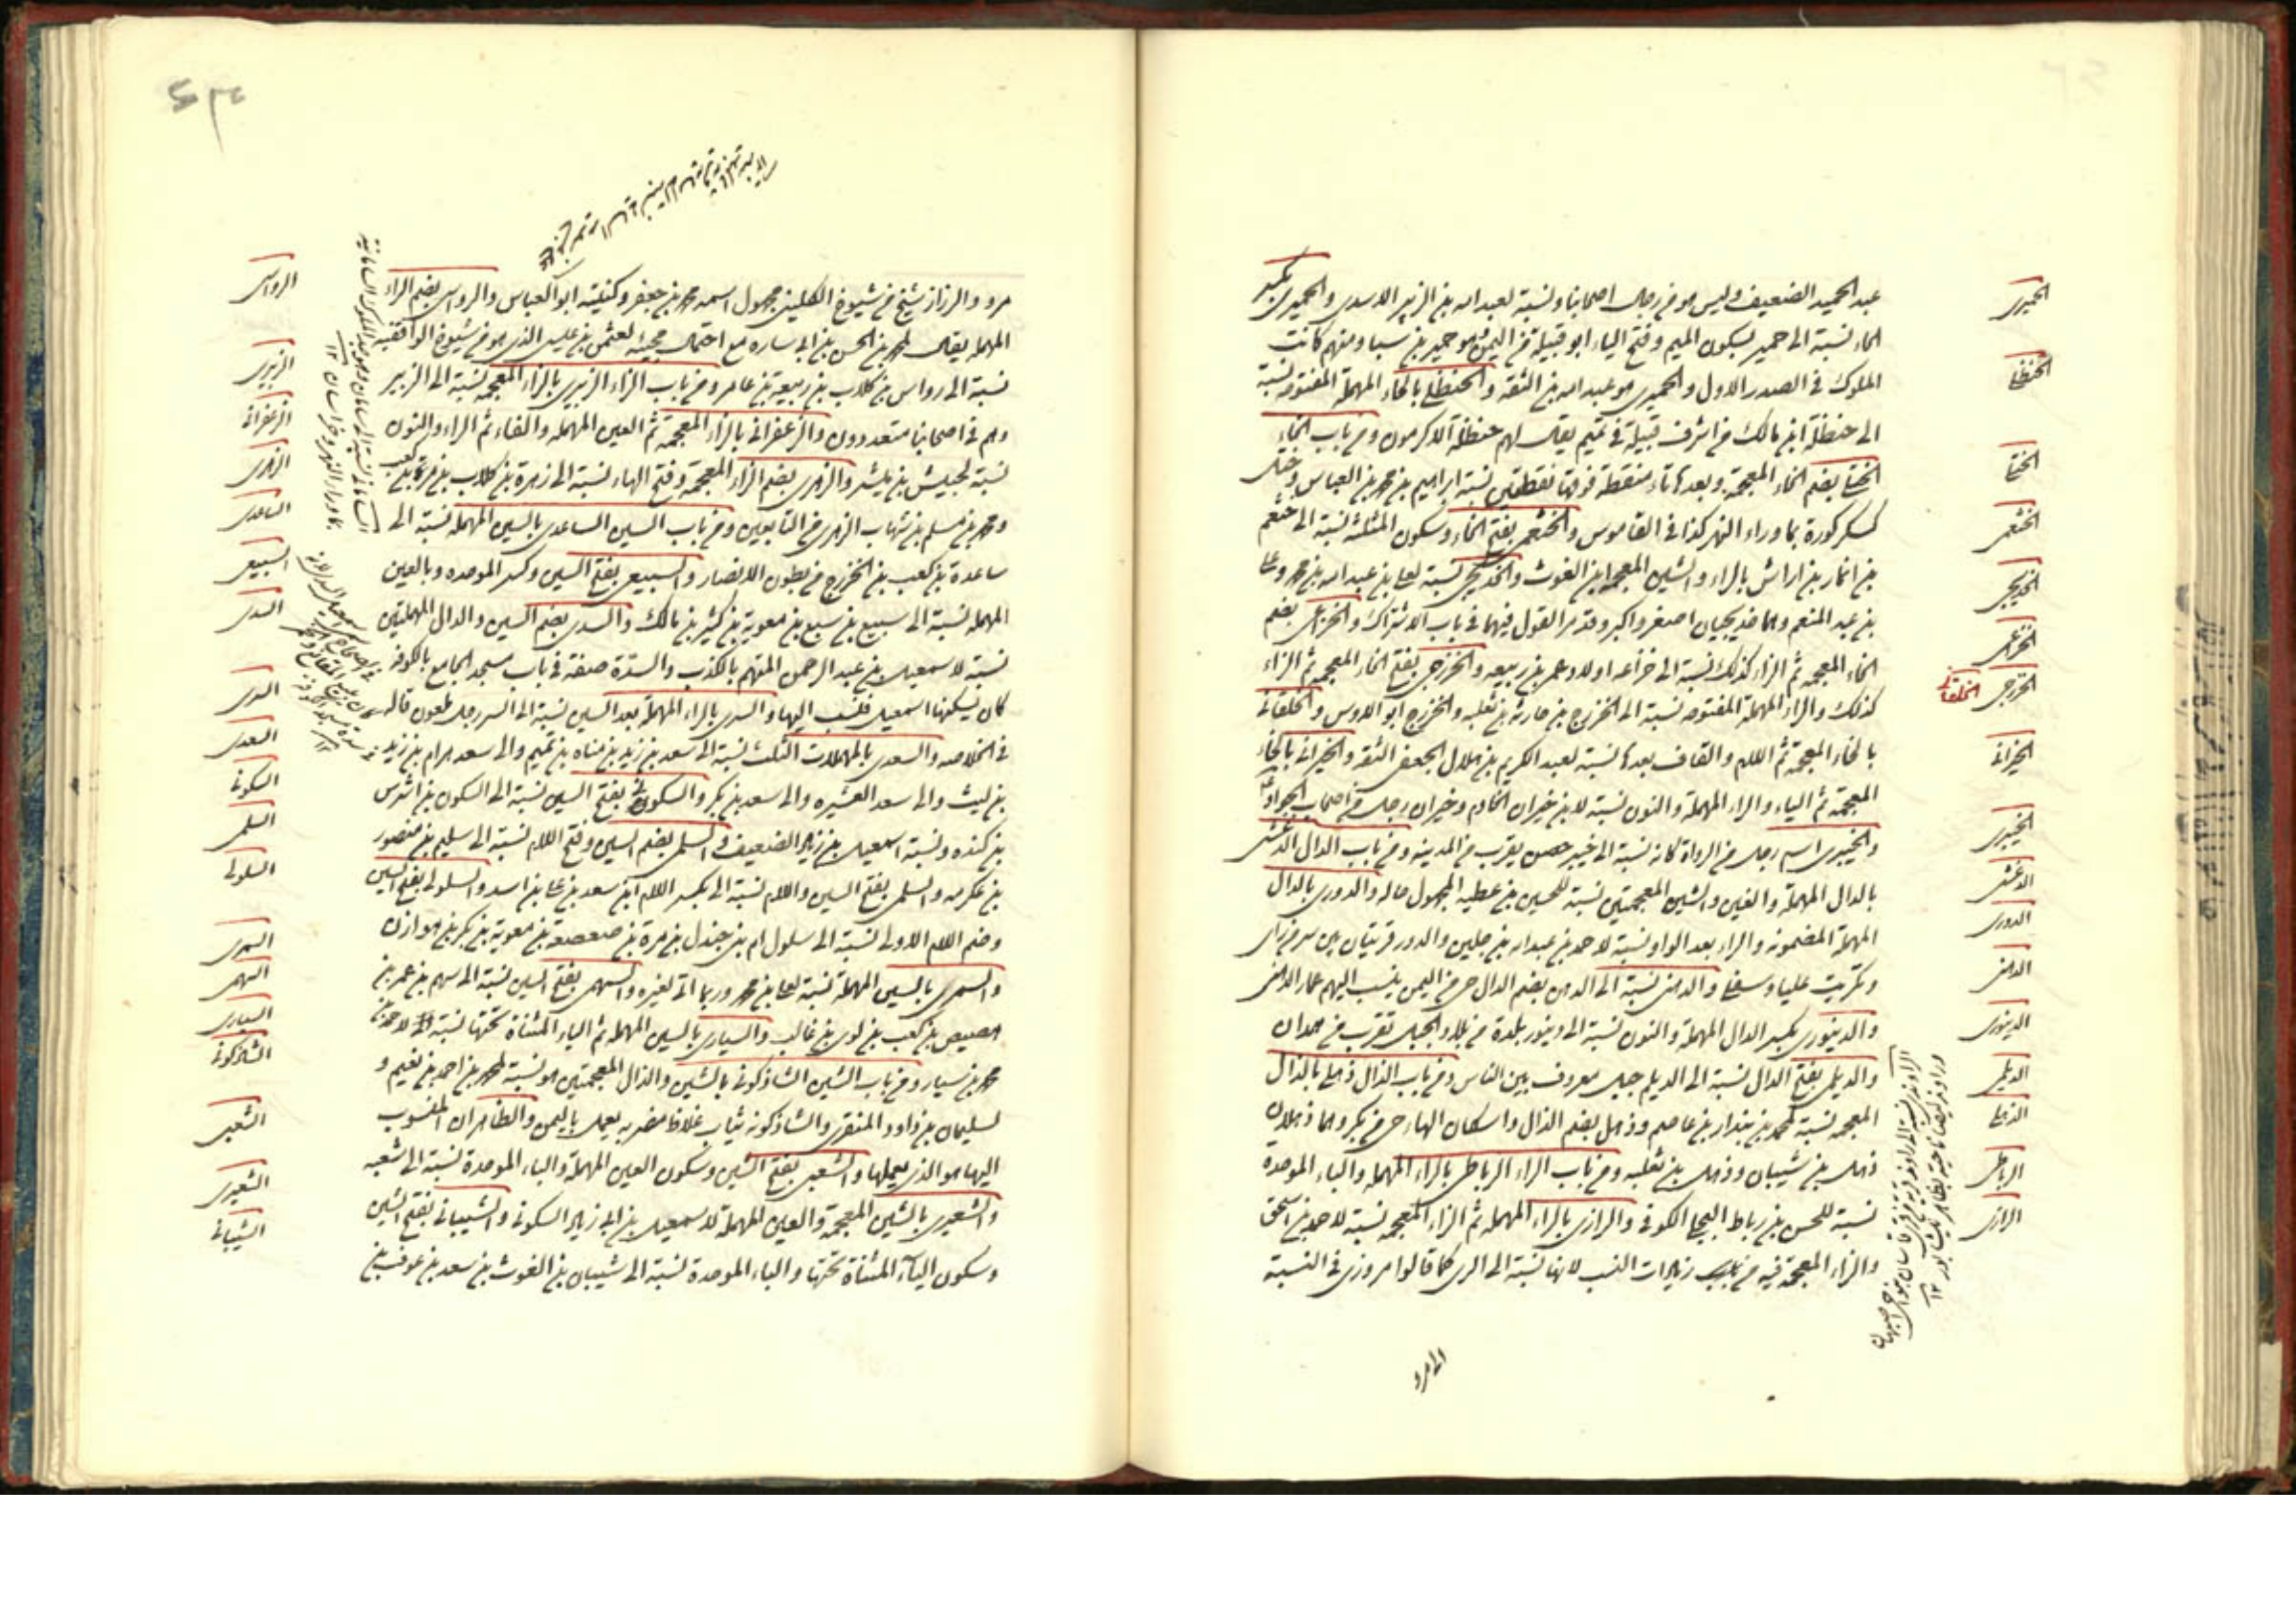 عبد الحميد الضعيف وليس هو من رجال اصحابنا ونسبة لعبد الله بن الزبير الاسدى والحميرى بكسر
الحاء نسبة الى حمير بسكون الميم وفتح الياء ابو قبيلة من اليمن وهو حمير بن سبا ومنهم كانت
الملوك فى الصدر الاول والحميرى هو عبد الله بن الثقة والحنظلى بالحاء المهملة المفتوحة نسبة
الى حنظلة ابن مالك من اشرف قبيلة فى تميم يقال لهم حنظلة الاكرمون ومن باب الخاء
الختلى بضم الخاء المعجمة وبعدها تاء منقطة فوقها نقطتين نسبة ابراهيم بن محمد بن العباس وختل
كسكر كورة بما وراء النهر كذا فى القاموس والخثعمى بفتح الخاء وسكون المثلثة نسبة الى خثعم
بن انمار بن اراش بالراء والشين المعجمة ابن الغوث والخديجى نسبة لعلى بن عبد الله بن محمد وعلى
بن عبد المنعم وهما خديجيان اصغر واكبر وقد مر القول فيهما فى باب الاشتراك والخزاعى بضم
الخاء المعجمة ثم الزاء كذلك نسبة الى خزاعة اولاد عمر بن ربيعه والخزرجى بفتح الخاء المعجمة ثم الزاء
كذلك والراء المهملة المفتوحه نسبة الى الخزرج بن حارثة بن ثعلبه والخزرج ابو الاوس والخلقانى
بالخاء المعجمة ثم اللام والقاف بعدها نسبة لعبد الكريم بن هلال الجعفى الثقة والخيرانى بالخاء
المعجمة ثم الياء والراء المهملة والنون نسبة لابن خيران الخادم وخيران رجل من اصحاب الجواد ع
والخيبرى اسم رجل من الرواة كانه نسبة الى خيبر حصن بقرب من المدينه ومن باب الدال الدغشى
بالدال المهملة والغين والشين المعجمتين نسبة للحسين بن عطيه المجهول حاله والدورى بالدال
المهملة المضمومة والراء بعد الواو نسبة لاحمد بن عبد الله بن جلين والدور قريتان بين سر من راى
وتكريت عليا وسفلى والدهنى نسبة الى الدهن بضم الدال حى من اليمن ينسب اليهم عمار الدهنى
والدينورى بكسر الدال المهملة والنون نسبة الى دينور بلدة من بلاد الجبل تقرب من همدان
والديلمى بفتح الدال نسبة الى الديلم جبل معروف بين الناس ومن باب الذال ذهلى بالذال
المعجمة نسبة لمحمد بن بندار بن عاصم وذهل بضم الذال واسكان الهاء حى من بكر وهما ذهلان
ذهل بن شيبان وذهل بن ثعلبه ومن باب الراء الرباطى بالراء المهملة والباء الموحدة
نسبة للحسن بن رباط البجلى الكوفى والرازى بالراء المهملة ثم الزاء المعجمه نسبة لاحمد بن اسحق
والزاء المعجمة فيه من زيادات النسب لانها نسبة الى الرى كما قالوا مروزى فى النسبة
الى مرو
الحميرى
الحنظلى
الختلى
الخثعمى
الخديجى
الخزاعى
الخزرجى
الخلقانى
الخيرانى
الخيبرى
الدغشى
الدورى
الدهنى
الدينورى
الديلمى
الذهلى
الرباطى
الرازى
مرو والرزاز شيخ من شيوخ الكلينى مجهول اسمه محمد بن جعفر وكنيته ابو العباس والرواسى بضم الراء
المهملة يقال لمحمد بن الحسن بن ابى ساره مع احتمال مجيئه لعثمن بن عيسى الذى هو من شيوخ الواقفيه
نسبة الى رواس بن كلاب بن ربيعة بن عامر ومن باب الزاء الزبيرى بالزاء المعجمه نسبة الى الزبير
وهم فى اصحابنا متعددون والزعفرانى بالزاء المعجمة ثم العين المهمله والفاء ثم الراء والنون
نسبة لجبيش بن مبشر والزهرى بضم الزاء المعجمة وفتح الهاء نسبة الى زهرة بن كلاب بن مرة بن كعب
ومحمد بن مسلم بن شهاب الزهرى من التابعين ومن باب السين الساعدى بالسين المهمله نسبة الى
ساعدة بن كعب بن الخزرج من بطون الانصار والسبيعى بفتح السين وكسر الموحده وبالعين
المهمله نسبة الى سبيع بن سبع بن معوية بن كثير بن مالك والسدى بضم السين والدال المهملتين
نسبة لاسمعيل بن عبد الرحمن المتهم بالكذب والسدّة صفة فى باب مسجد الجامع بالكوفه
كان يسكنها اسمعيل فنسب اليها والسرى بالراء المهملة بعد السين نسبة الى السر رجل ملعون قاله
فى الخلاصه والسعدى بالمهملات الثلث نسبة الى سعد بن زيد بن مناة بن تميم والى سعد هرام بن زيد
بن ليث والى سعد العشيره والى سعد بن بكر والسكونى بفتح السين نسبة الى السكون بن اشرس
بن كنده ونسبة اسمعيل بن زياد الضعيف والسلمى بضم السين وفتح اللام نسبة الى سليم بن منصور
بن عكرمه والسلمى بفتح السين واللام نسبة الى بكسر اللام ابن سعد بن على بن اسد والسلولى بفتح السين
وضم اللام الاولى نسبة الى سلول ام بنى جندل بن مرة بن صعصعة بن معوية بن بكر بن هوازن
والسمرى بالسين المهملة نسبة لعلى بن محمد وربما اتى لغيره والسهمى بفتح السين نسبة الى سهم بن عمر بن
هصيص بن كعب بن لوى بن غالب والسيارى بالسين المهمله ثم الياء المثناة تحتها نسبة لاحمد بن
محمد بن سيار ومن باب الشين الشاذكونى بالشين والذال المعجمتين هو نسبة لمحمد بن احمد بن نعيم و
لسليمان بن داود المنقرى والشاذكونه ثياب غلاظ مضربه يعمل باليمن والظاهر ان المنسوب
اليها هو الذى يعملها والشعبى بفتح الشين وسكون العين المهملة والباء الموحدة نسبة الى شعبه
والشعيرى بالشين المعجمة والعين المهملة لاسمعيل بن ابى زياد السكونى والشيبانى بفتح الشين
وسكون الياء المثناة تحتها والباء الموحدة نسبة الى شيبان بن الغوث بن سعد بن عوف بن
الرواسى
الزبيرى
الزعفرانى
الزهرى
الساعدى
السبيعى
السدى
السرى
السعدى
السكونى
السلمى
السلولى
السمرى
السهمى
السيارى
الشاذكونى
الشعبى
الشعيرى
الشيبانى